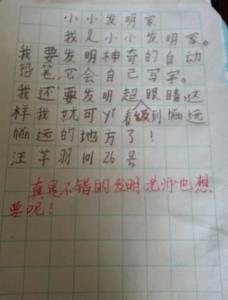 小小发明家
我是小小发明家。
我要发明神奇的自动
铅笔,它会自己写字。
我还要发明超眼睛这
样我就可以看到很远
很远的地方了!
汪芊羽101 26号
真是不错的发明,老师也想
要呢!